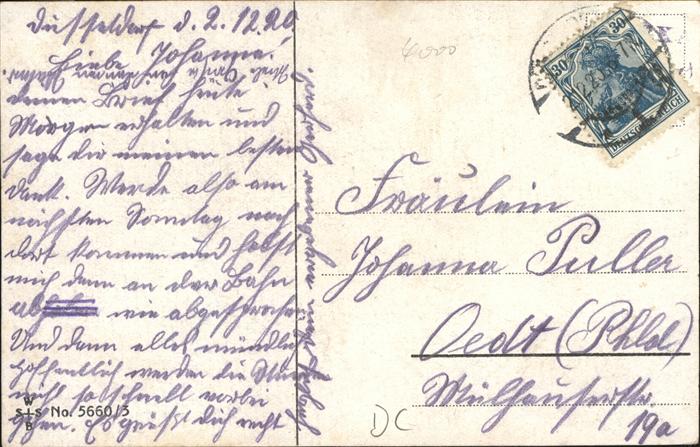 Düsseldorf d. 2.12.20
Liebe Johanna!
deinen Brief heute
Morgen erhalten und
sage dir meinen besten
Dank. Werde also am
nächsten Sonntag nach
dort kommen und holst
mich dann an der Bahn
ab wie abgesprochen
Und dann alles mündlich
Hoffentlich werden die
nicht so schnell vorbei
gehen. Es grüßt dich recht
W
S+S No. 5660/3
B
4000
30 30
DEUTSCHES REICH
Fräulein
Johanna Puller
Oedt (Rhld)
Mülhauserstr
19a
DC